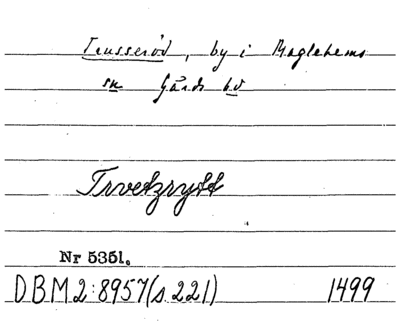 Trusseröd, by i Maglehems
sn Gärds hd
Trvetzrytt
Nr 5351.
DBM 2:8957 (s 221) 1499